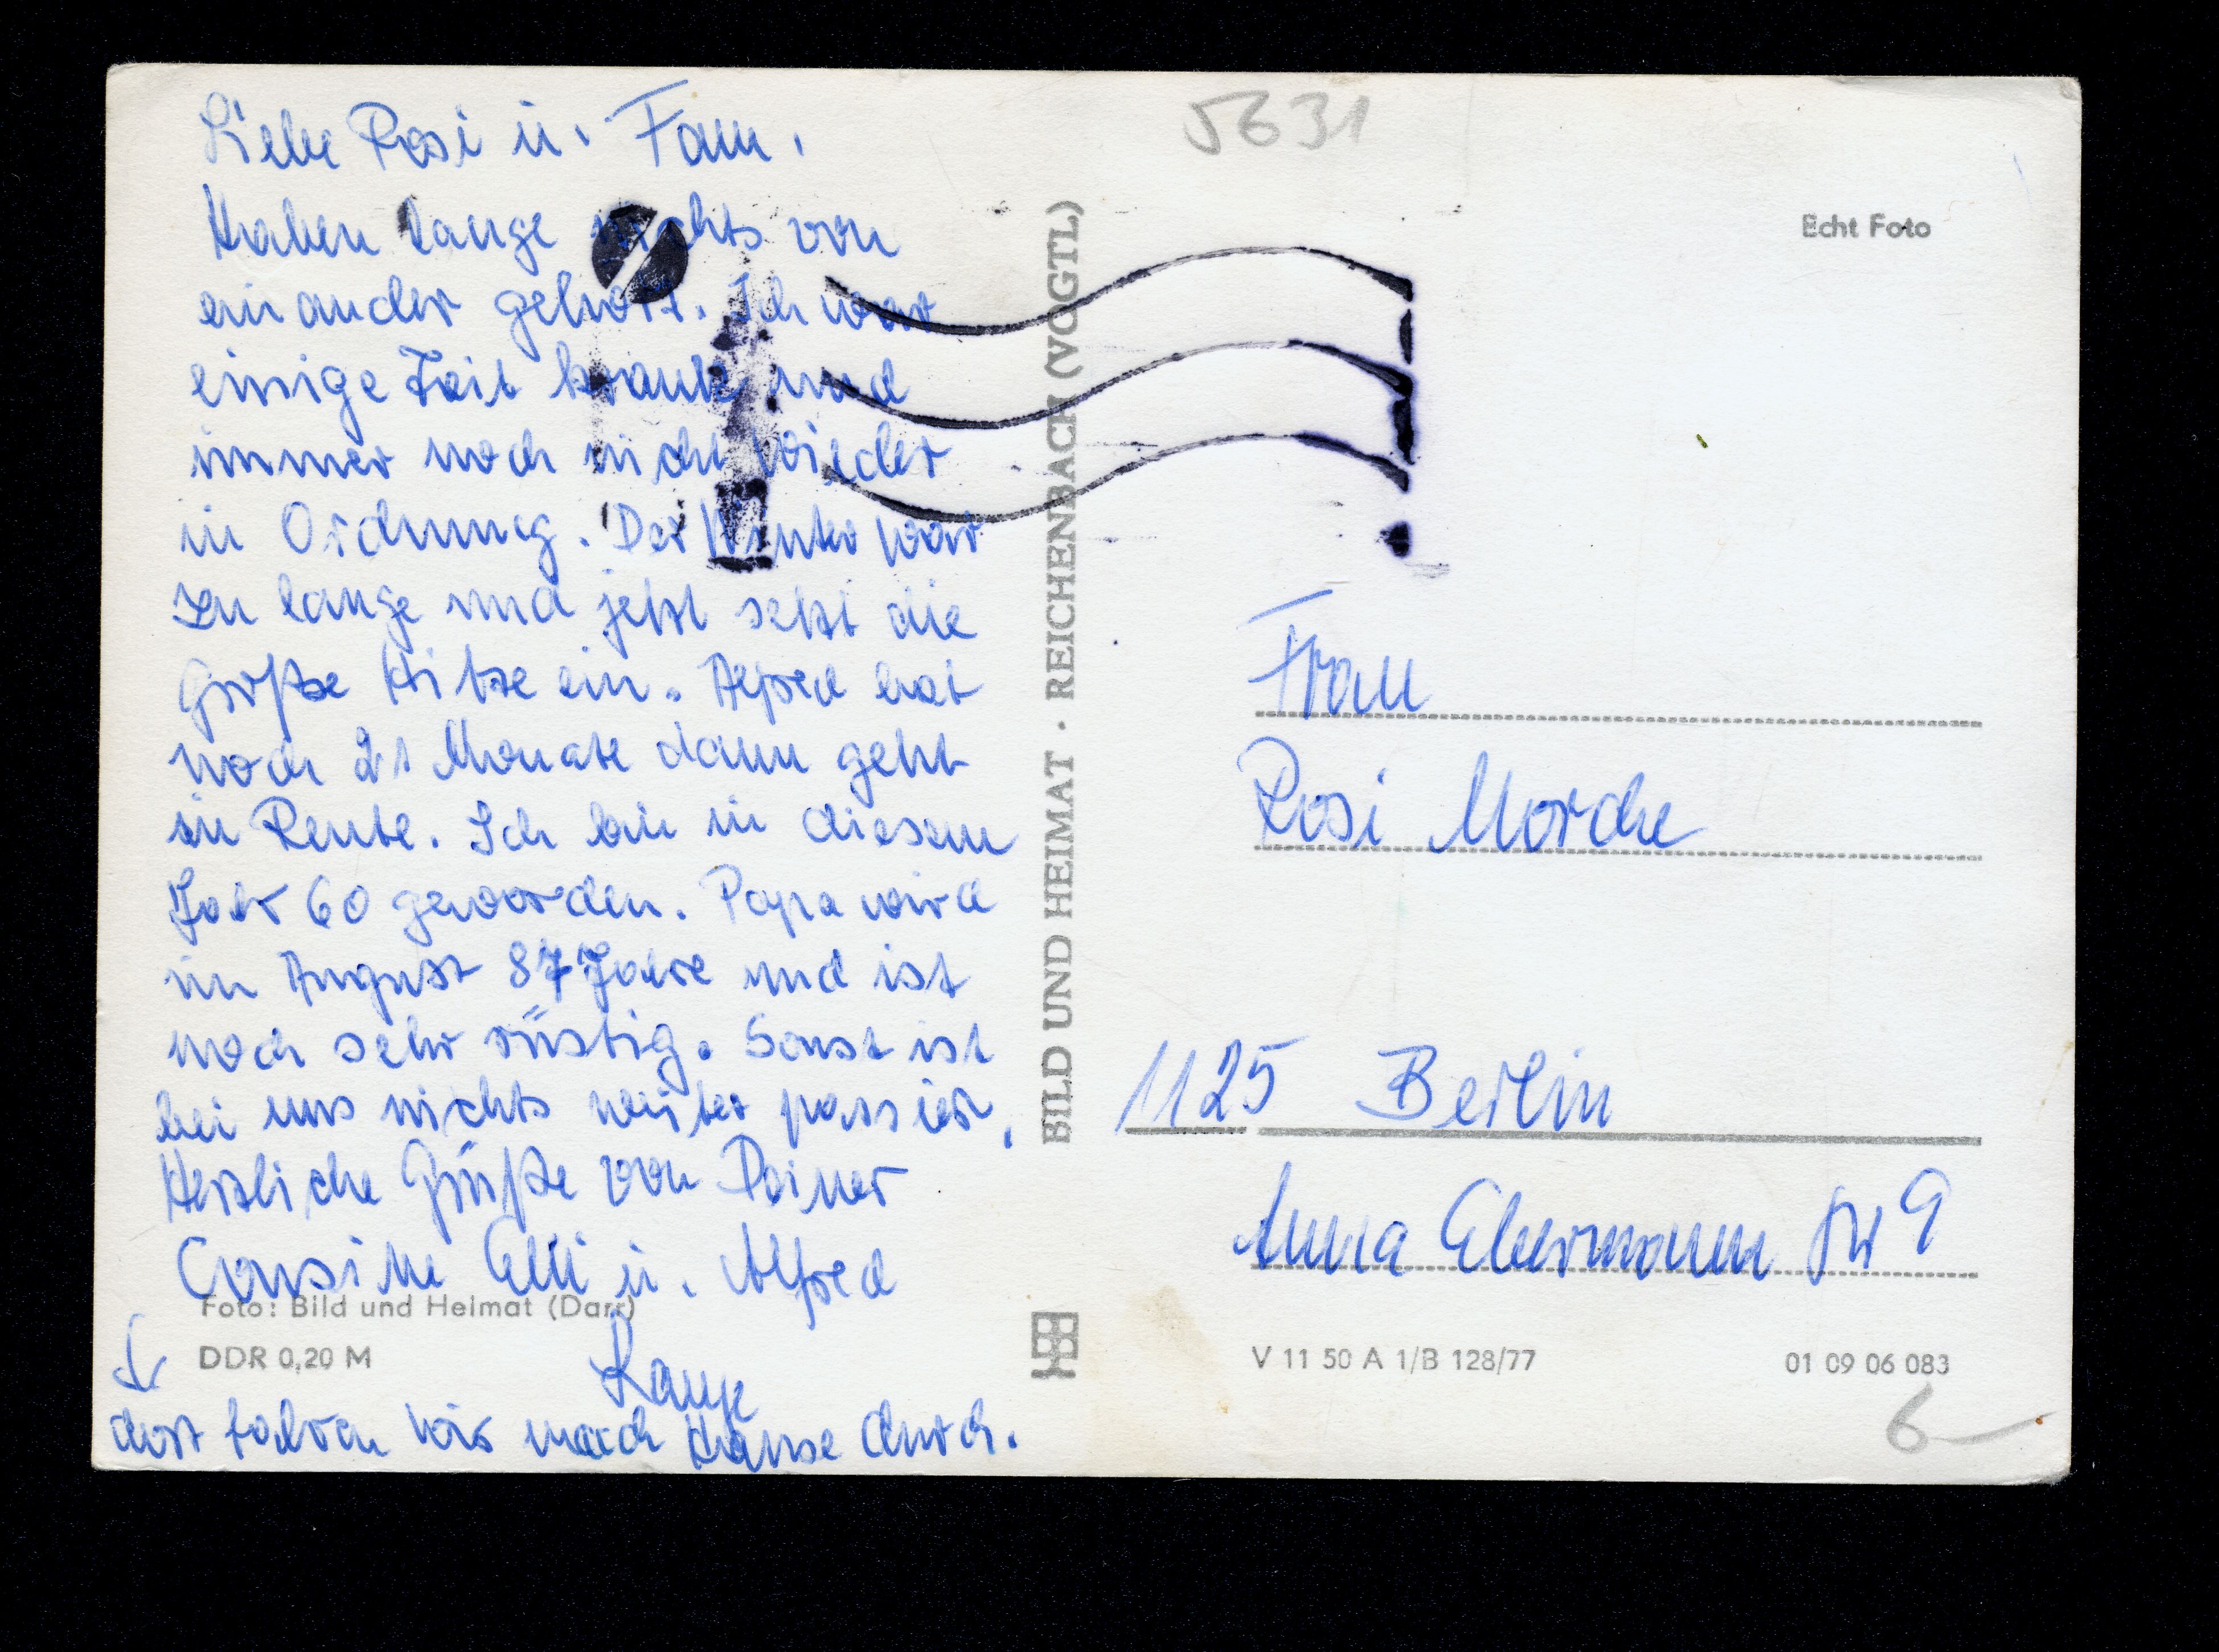 Liebe Rosi u. Fam.
Haben lange nichts von
einander gehört. Ich war
einige Zeit krank und
immer noch nicht wieder
in Ordnung. Der Winter war
zu lange und jetzt setzt die
große Hitze ein. Alfred hat
noch 21 Monate dann geht
in Rente. Ich bin in diesem
Jahr 60 geworden. Papa wird
im August 87 Jahre und ist
noch sehr rüstig. Sonst ist
bei uns nichts weiter passier.
Herzliche Grüße von Deiner
Cousine Elli u. Alfred
Lange
dort fahren wir nach Hause durch.
Foto: Bild und Heimat (Darr)
DDR 0,20 M
BILD UND HEIMAT · REICHENBACH (VOGTL)
5631
Echt Foto
Frau
Rosi Morche
1125 Berlin
Anna Ebermann Str 9
V 11 50 A 1/B 128/77
01 09 06 083
6